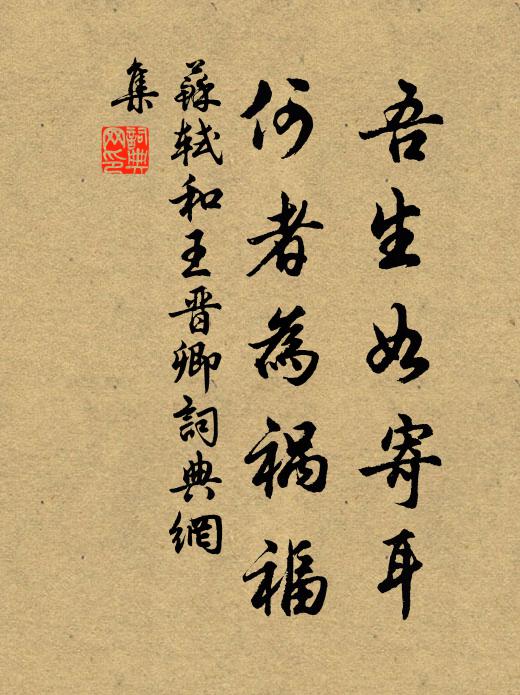 吾生如寄耳
何者為禍福
蘇軾和王晋卿詞典網
集
詞典
网印